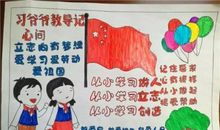 习爷爷教导记
心间
立志向有梦想
爱学习爱劳动
爱祖国
从小学习做人
从小学习立志
从小学习创造
记住要求
心有榜样